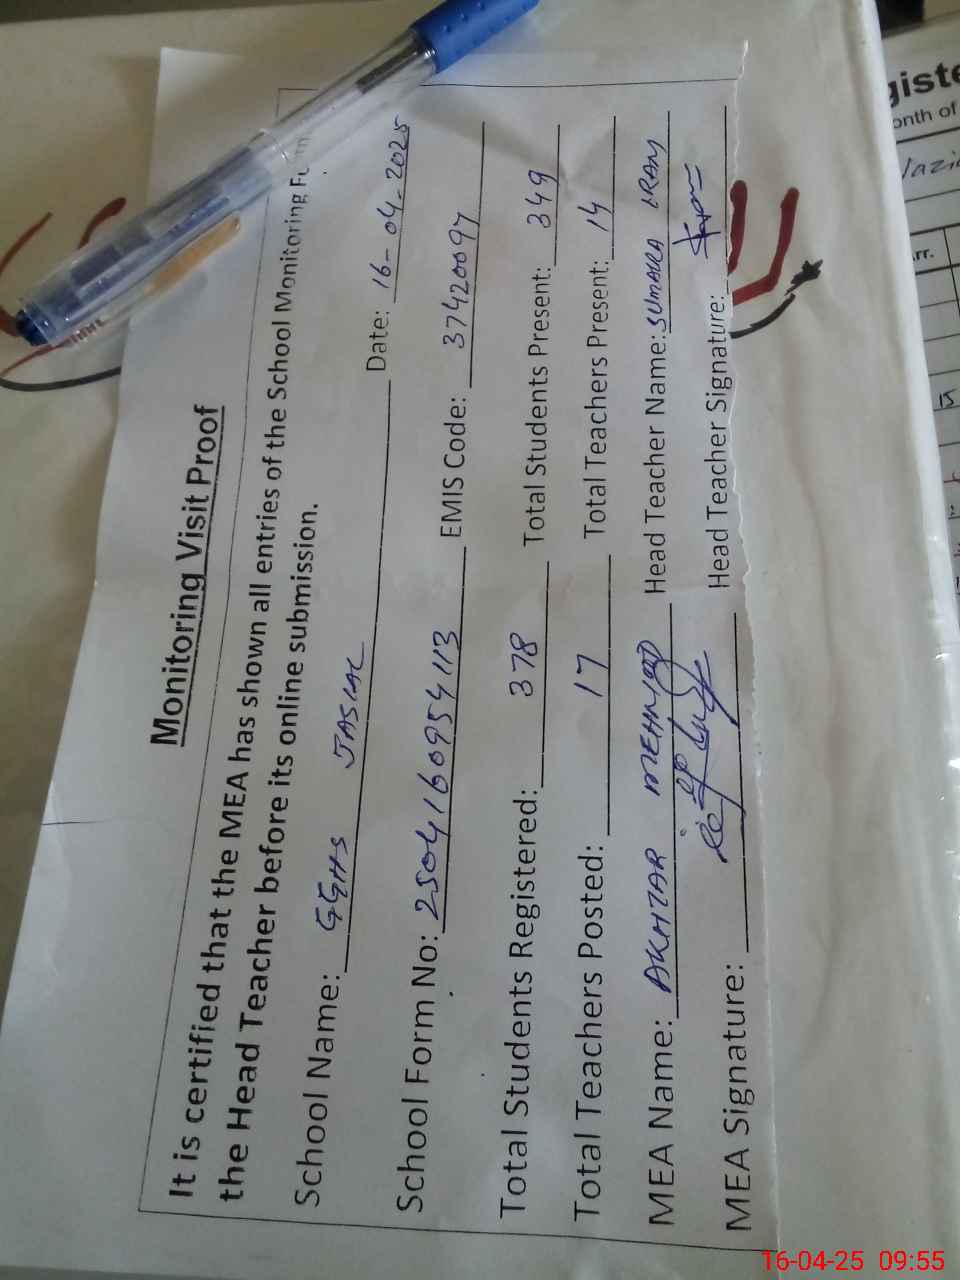 Monitoring Visit Proof
It is certified that the MEA has shown all entries of the School Monitoring Form
the Head Teacher before its online submission.
School Name: GGHS JASIAL Date: 16-04-2025
School Form No: 2504160954113 EMIS Code: 37420097
Total Students Registered: 378 Total Students Present: 349
Total Teachers Posted: 17 Total Teachers Present: 14
MEA Name: AKHTAR MEHMOOD Head Teacher Name: SUMAIRA IRAM
MEA Signature: Head Teacher Signature:
giste
onth of
Nazi
rr.
16-04-25 09:55